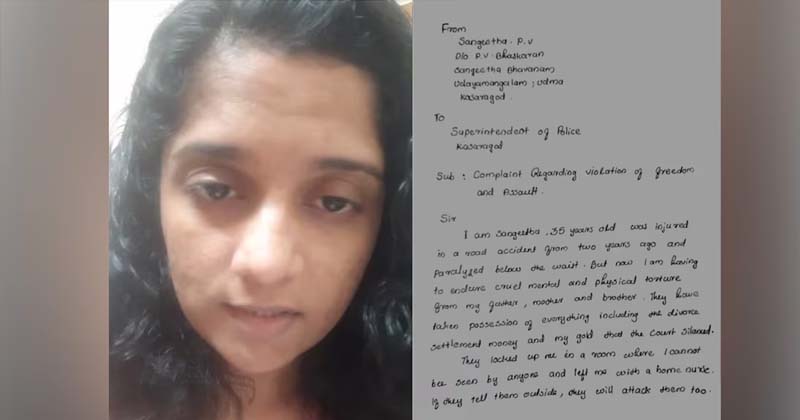 From
Sangeetha. P.V
D/o P.V. Bhaskaran
Sangeetha Bhavanam
Udayamangalam, Udma
Kasaragod.
To
Superintendent of Police
Kasaragod
Sub : Complaint Regarding violation of freedom
and Assault.
Sir
I am Sangeetha, 35 years old was injured
in a road accident from two years ago and
paralyzed below the waist. But now I am having
to endure cruel mental and physical torture
from my father, mother and brother. They have
taken possession of everything including the divorce
settlement money and my gold that the court
They locked up me in a room where I cannot
be seen by anyone and left me with a home nurse.
If they tell them outside, they will attack them too.